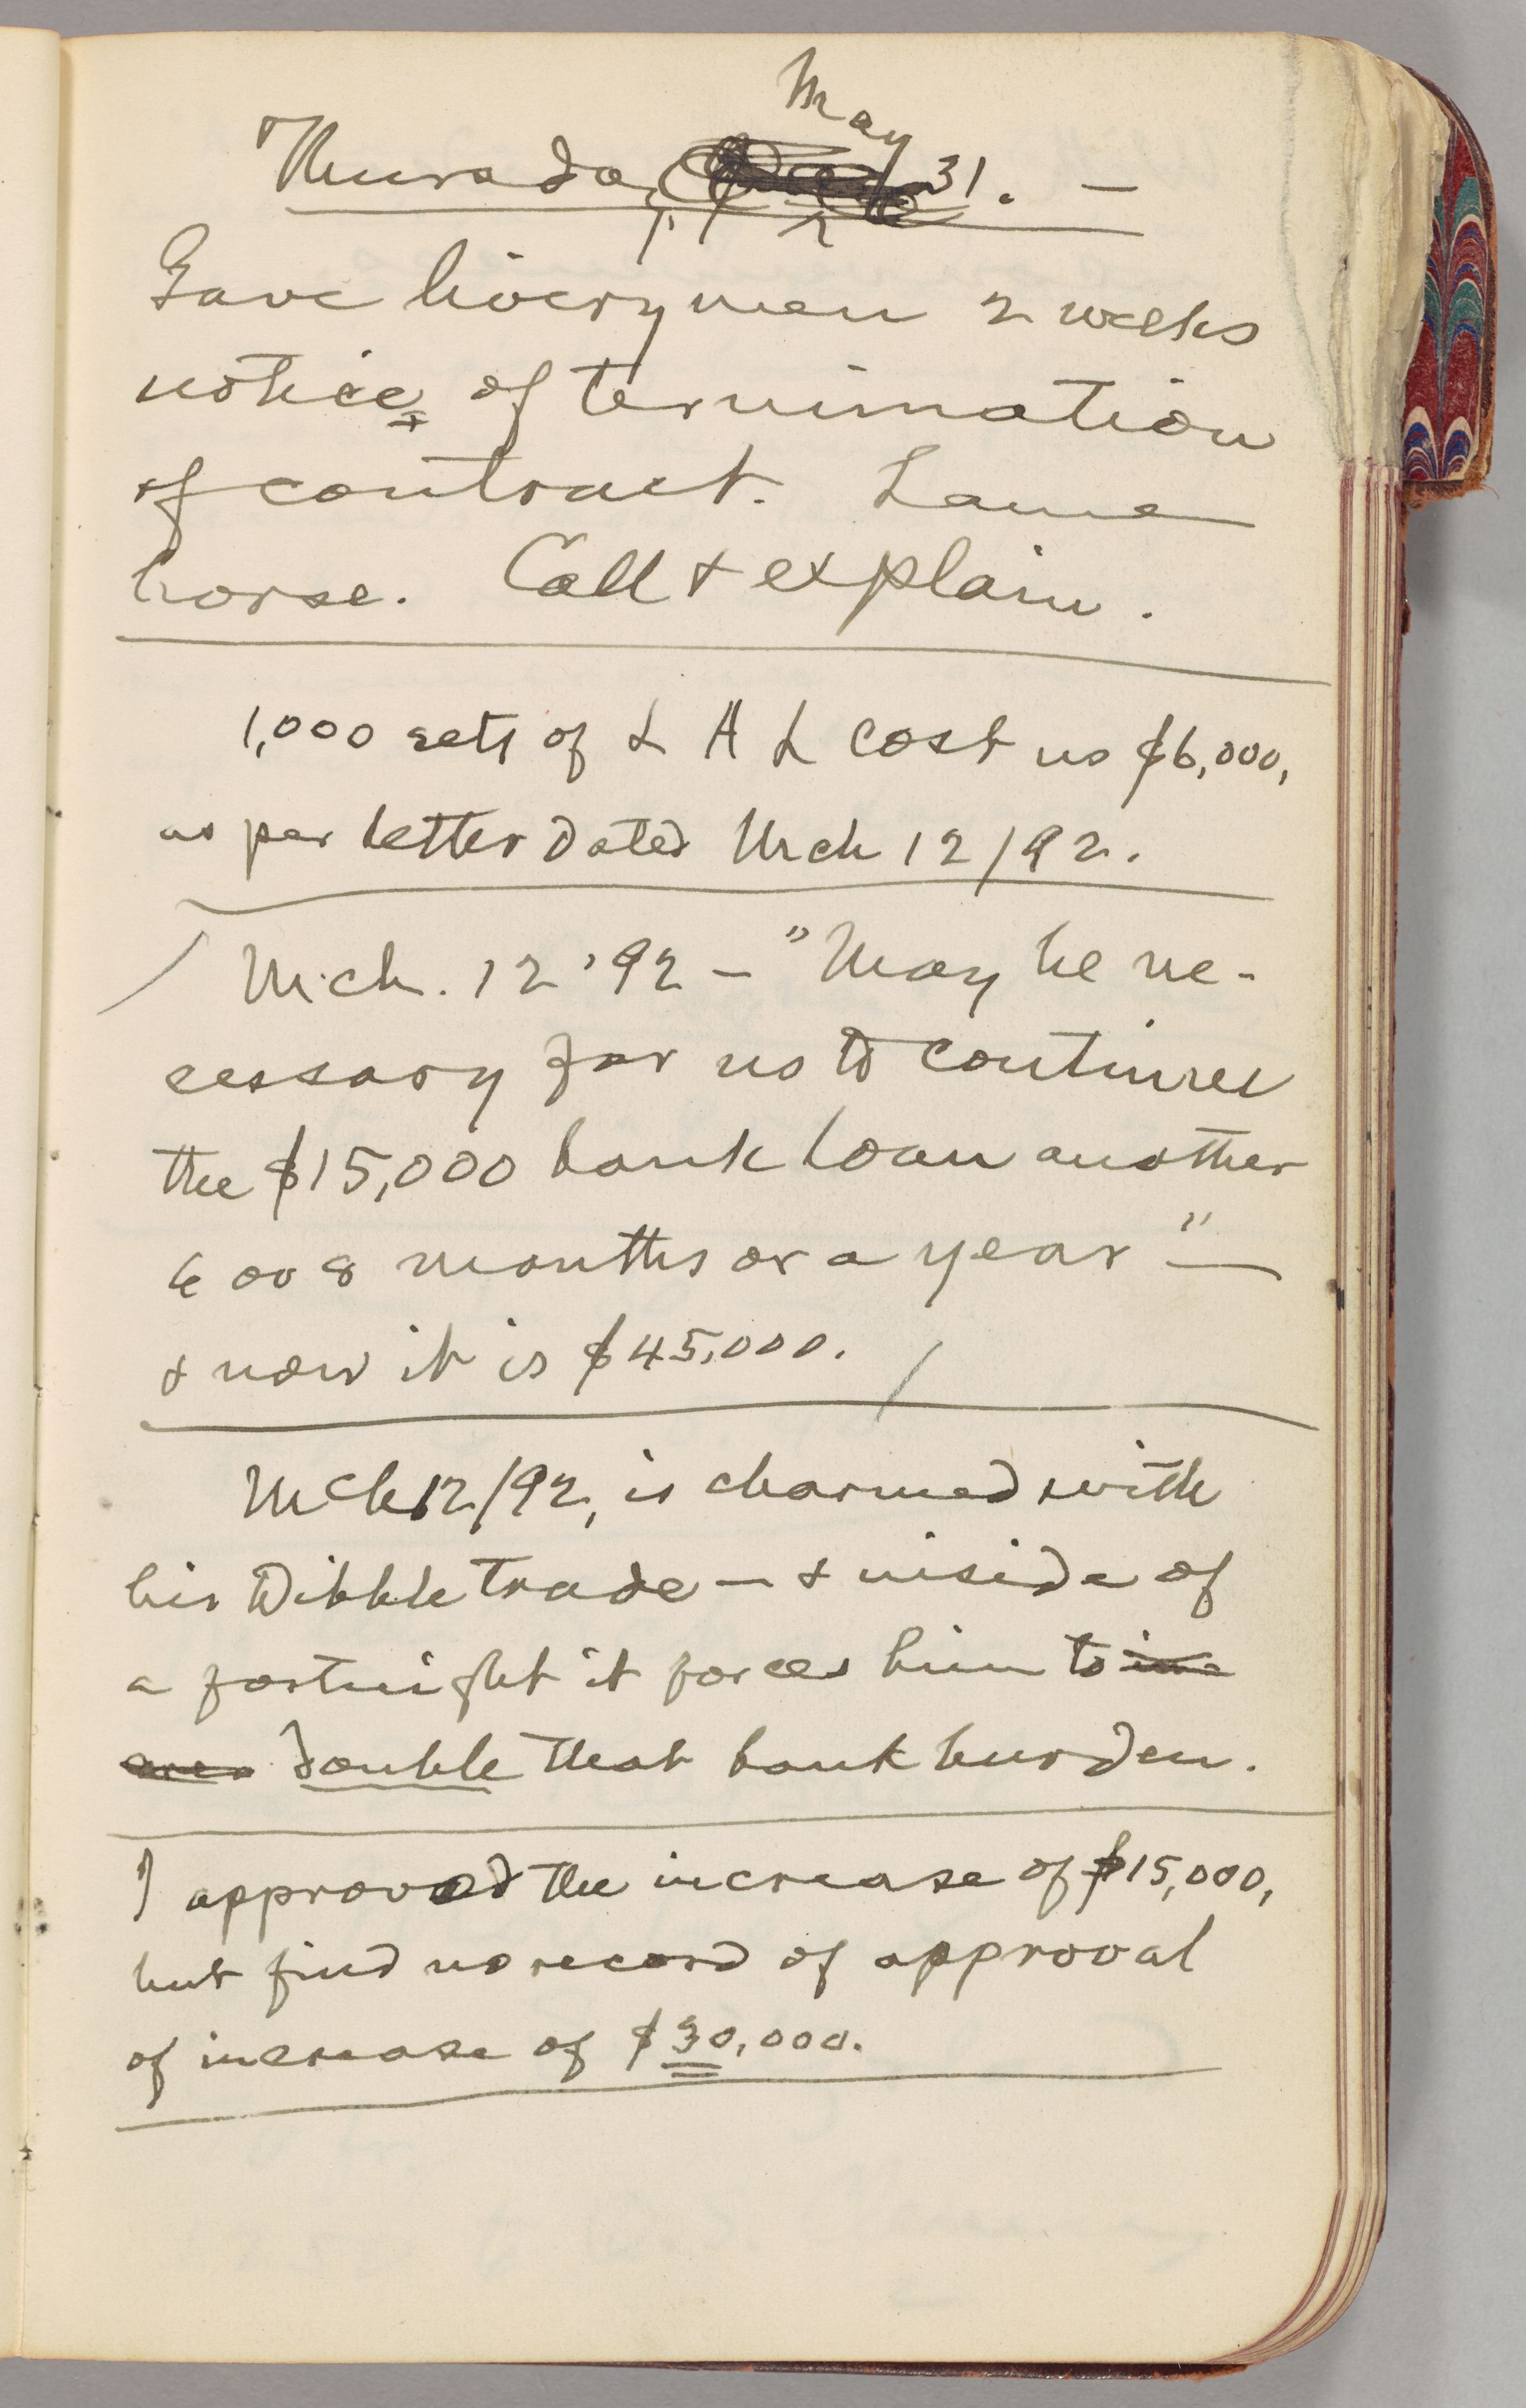 May
Thursday, 31. —
Gave liveryman 2 weeks
notice of termination
of contract. Lame
horse. Call & explain.
1,000 sets of L A L cost us $6,000,
as per letter dated Mch 12/92.
Mch. 12 '92 — "May be ne-
cessary for us to continue
the $15,000 bank loan another
6 or 8 months or a year" —
& now it is $45,000.
Mch 12/92, is charmed with
his Dibble trade — & inside of
a fortnight it forces him to
double that bank burden.
I approved the increase of $15,000,
but find no record of approval
of increase of $30,000.